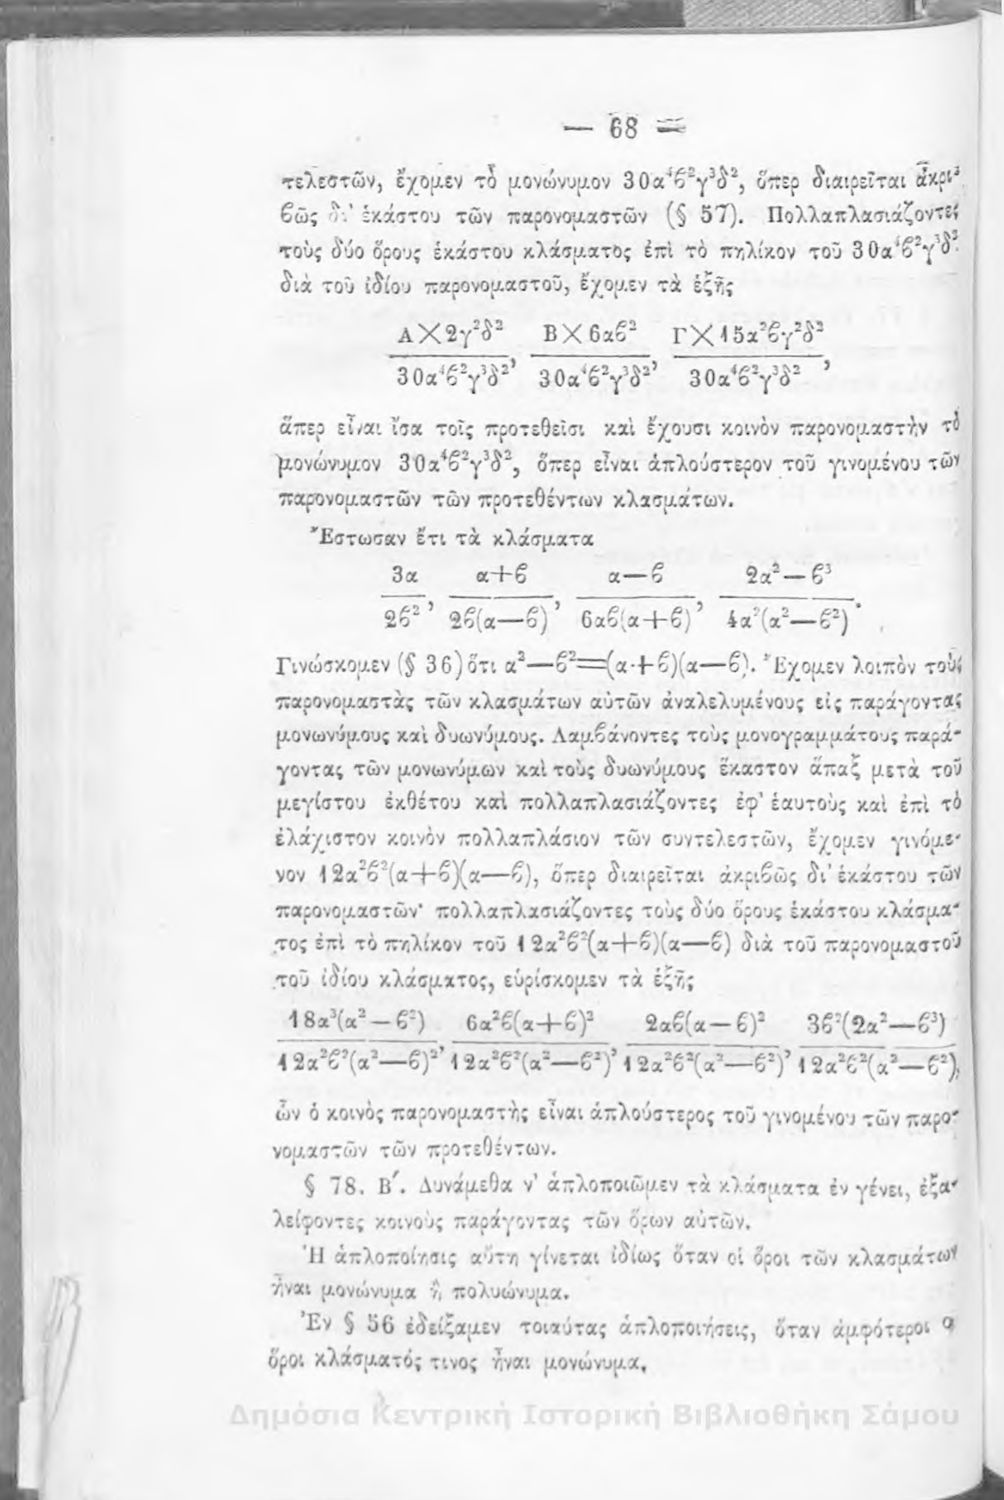 — 68 —
τελεστῶν, ἔχομεν τὸ μονώνυμον 30α⁴ϐ²γ³δ², ὅπερ διαιρεῖται ἀκρι-
ϐῶς δι’ ἑκάστου τῶν παρονομαστῶν (§ 57). Πολλαπλασιάζοντες
τοὺς δύο ὅρους ἑκάστου κλάσματος ἐπὶ τὸ πηλίκον τοῦ 30α⁴ϐ²γ³δ²
διὰ τοῦ ἰδίου παρονομαστοῦ, ἔχομεν τὰ ἑξῆς
Α×2γ²δ² Β×6αϐ² Γ×15α²ϐγ²δ²
30α⁴ϐ²γ³δ², 30α⁴ϐ²γ³δ², 30α⁴ϐ²γ³δ² ,
ἅπερ εἶναι ἴσα τοῖς προτεθεῖσι καὶ ἔχουσι κοινὸν παρονομαστὴν τὸ
μονώνυμον 30α⁴ϐ²γ³δ², ὅπερ εἶναι ἁπλούστερον τοῦ γινομένου τῶν
παρονομαστῶν τῶν προτεθέντων κλασμάτων.
Ἔστωσαν ἔτι τὰ κλάσματα
3α α+ϐ α—ϐ 2α²—ϐ³
2ϐ² , 2ϐ(α—ϐ) , 6αϐ(α+ϐ) , 4α²(α²—ϐ²) .
Γινώσκομεν (§ 36) ὅτι α²—ϐ²=(α+ϐ)(α—ϐ). Ἔχομεν λοιπὸν τοὺς
παρονομαστὰς τῶν κλασμάτων αὐτῶν ἀναλελυμένους εἰς παράγοντας
μονωνύμους καὶ δυωνύμους. Λαμϐάνοντες τοὺς μονογραμμάτους παρά-
γοντας τῶν μονωνύμων καὶ τοὺς δυωνύμους ἕκαστον ἅπαξ μετὰ τοῦ
μεγίστου ἐκθέτου καὶ πολλαπλασιάζοντες ἐφ’ ἑαυτοὺς καὶ ἐπὶ τὸ
ἐλάχιστον κοινὸν πολλαπλάσιον τῶν συντελεστῶν, ἔχομεν γινόμε-
νον 12α²ϐ²(α+ϐ)(α—ϐ), ὅπερ διαιρεῖται ἀκριϐῶς δι’ ἑκάστου τῶν
παρονομαστῶν· πολλαπλασιάζοντες τοὺς δύο ὅρους ἑκάστου κλάσμα-
τος ἐπὶ τὸ πηλίκον τοῦ 12α²ϐ²(α+ϐ)(α—ϐ) διὰ τοῦ παρονομαστοῦ
τοῦ ἰδίου κλάσματος, εὑρίσκομεν τὰ ἑξῆς
18α³(α²—ϐ²) 6α²ϐ(α+ϐ)² 2αϐ(α—ϐ)² 3ϐ²(2α²—ϐ³)
12α²ϐ²(α²—ϐ)², 12α²ϐ²(α²—ϐ²), 12α²ϐ²(α²—ϐ²), 12α²ϐ²(α²—ϐ²),
ὧν ὁ κοινὸς παρονομαστὴς εἶναι ἁπλούστερος τοῦ γινομένου τῶν παρο-
νομαστῶν τῶν προτεθέντων.
§ 78. Β΄. Δυνάμεθα ν’ ἁπλοποιῶμεν τὰ κλάσματα ἐν γένει, ἐξα-
λείφοντες κοινοὺς παράγοντας τῶν ὅρων αὐτῶν.
Ἡ ἁπλοποίησις αὕτη γίνεται ἰδίως ὅταν οἱ ὅροι τῶν κλασμάτων
ἦναι μονώνυμα ἢ πολυώνυμα.
Ἐν § 56 ἐδείξαμεν τοιαύτας ἁπλοποιήσεις, ὅταν ἀμφότεροι οἱ
ὅροι κλάσματός τινος ἦναι μονώνυμα.
Δημόσια Κεντρική Ιστορική Βιβλιοθήκη Σάμου